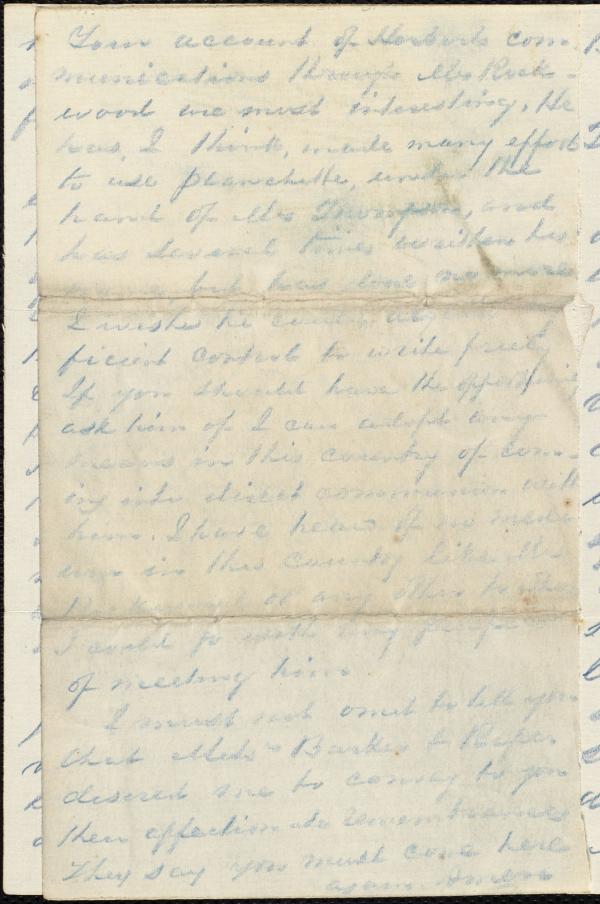 Your account of Herberts com
munications through Mrs Rock-
wood are most interesting. He
has, I think, made many effort
to use planchette, under the
hand of Mrs Thompson, and
has several times written his
but has done no more
I wish he could
ficient control to write freely
If you should have the opportunity
ask him if I can adopt any
means in this country of com-
ing into direct communion with
him. I have heard of no medi
um in this country like Mrs
Rockwood or any other to whom
I could go with any
of meeting him
I must not omit to tell you
that Barker &
desired me to convey to you
their affectionate remembrances
They say you must come here
again.